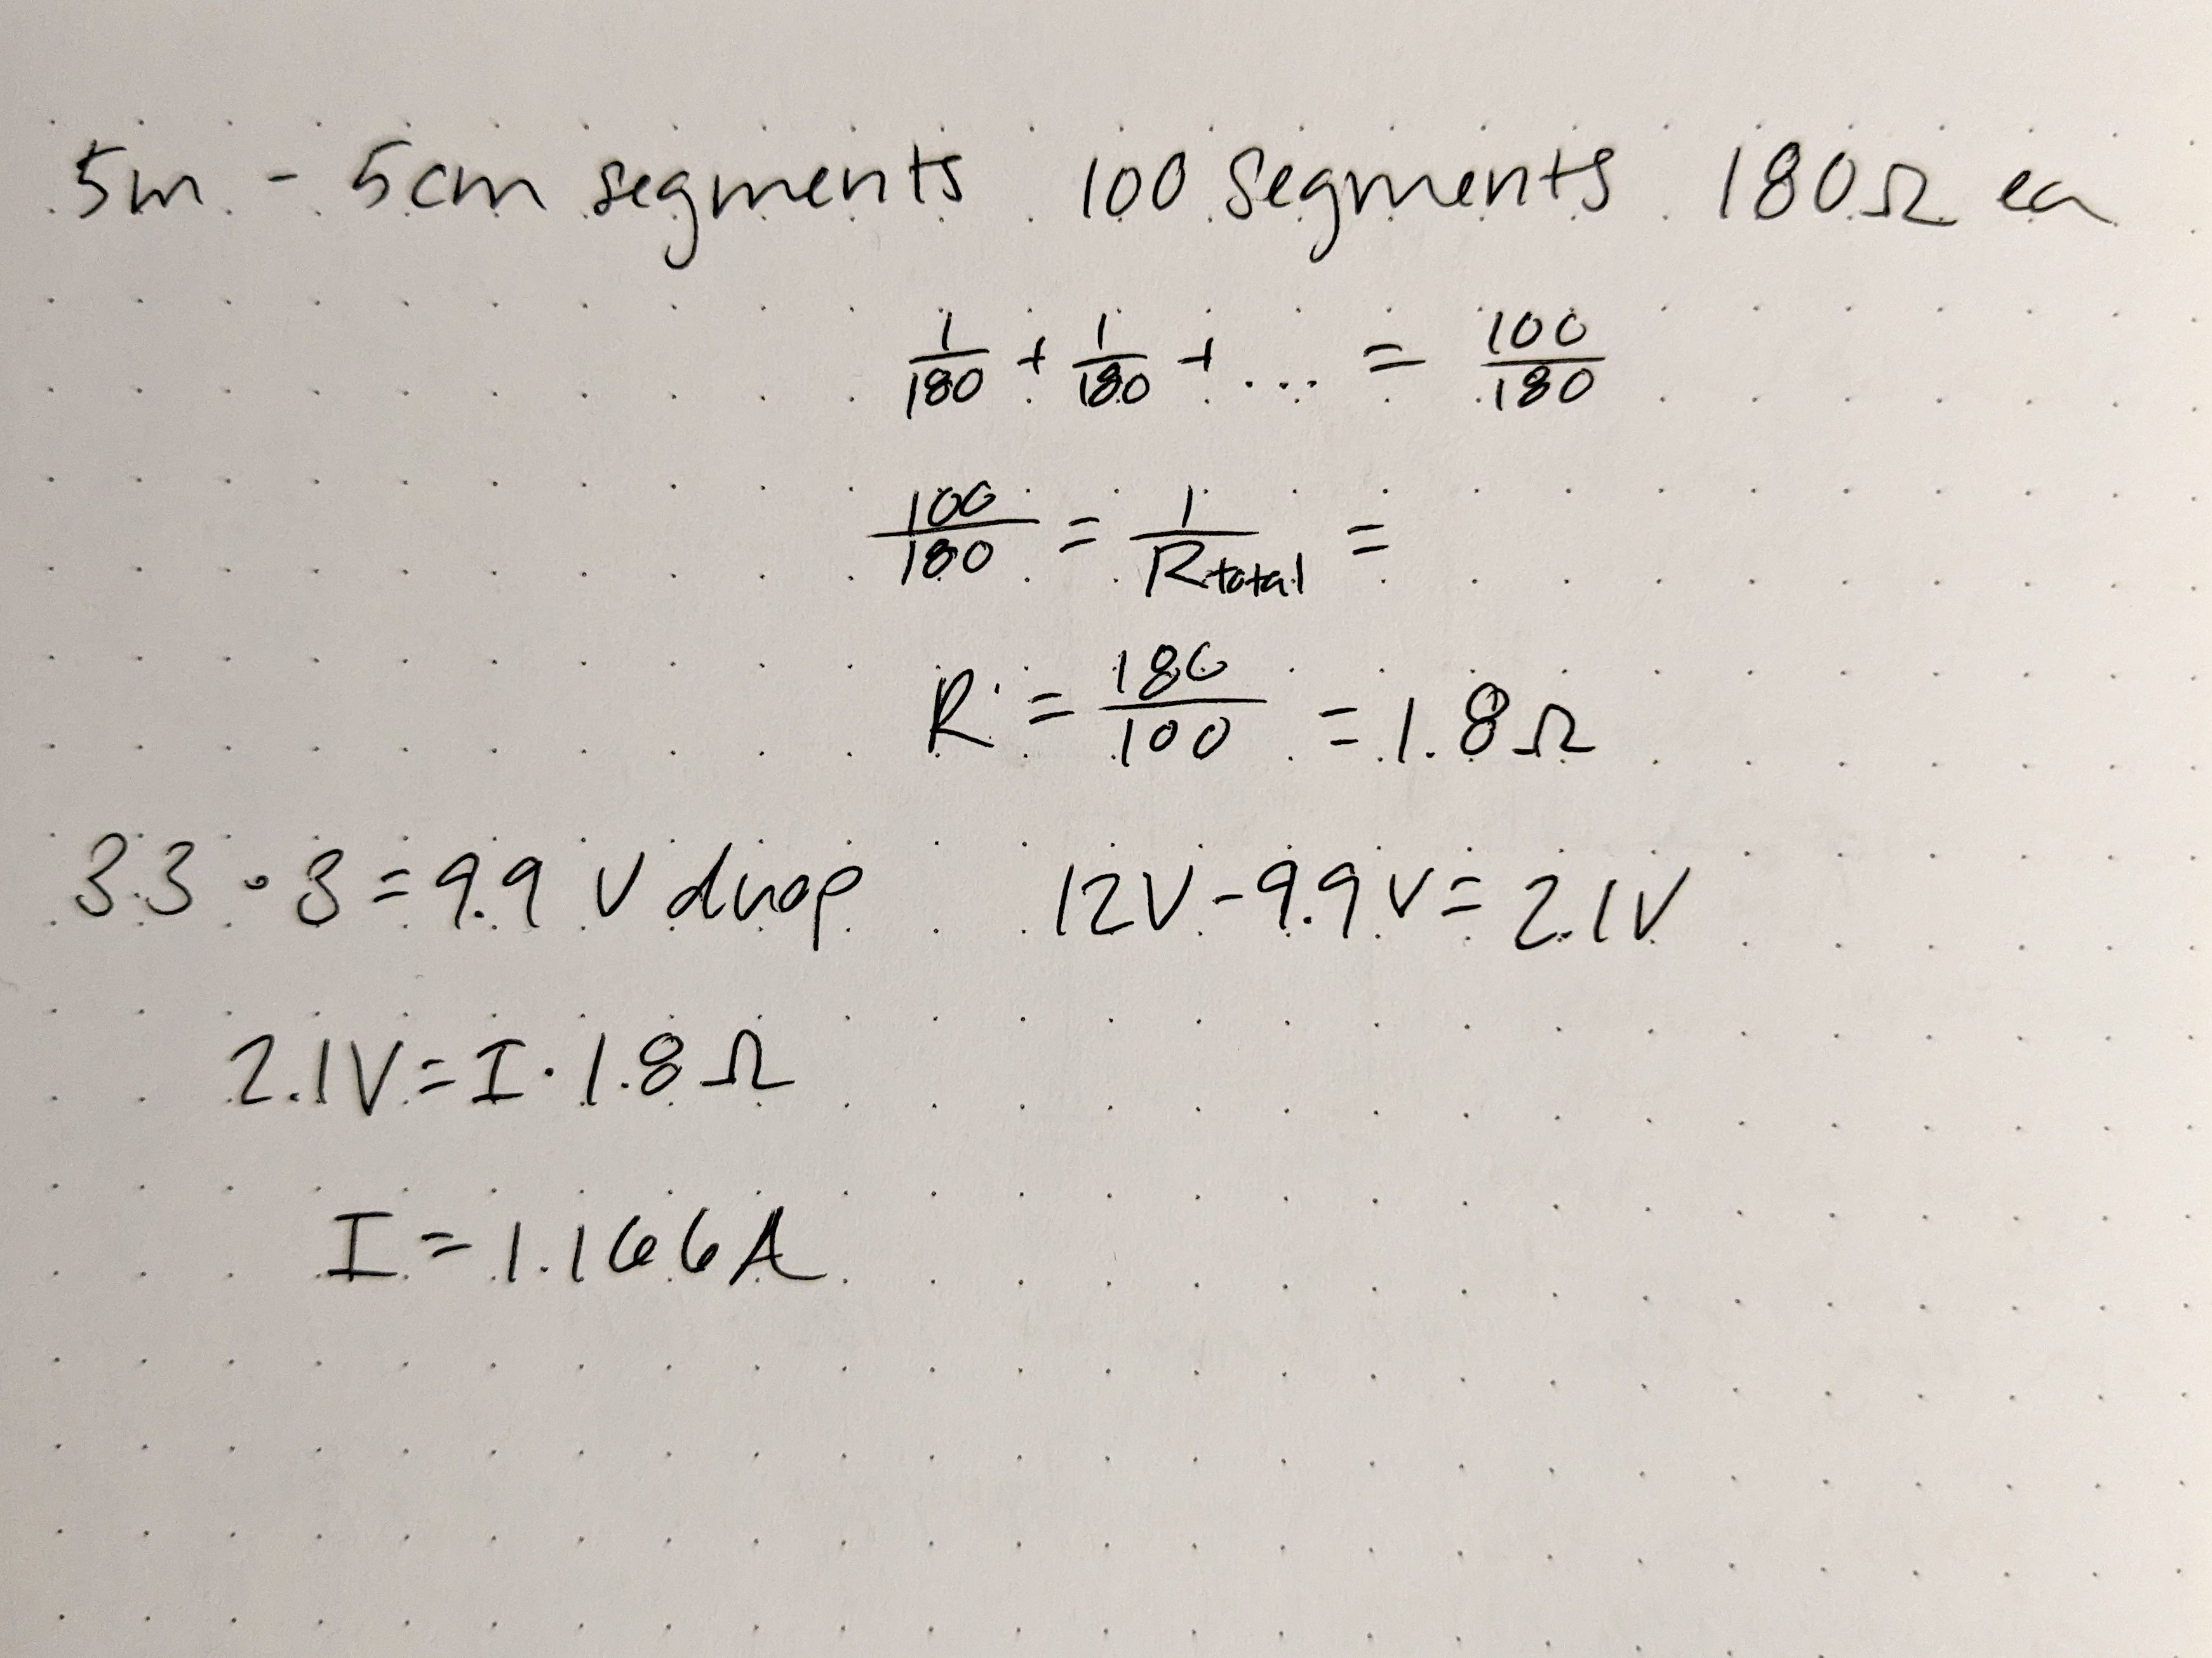 5m - 5cm segments 100 segments 180Ω ea
1/180 + 1/180 + ... = 100/180
100/180 = 1/Rtotal =
R = 180/100 = 1.8Ω
3.3 · 3 = 9.9 V drop 12V - 9.9V = 2.1V
2.1V = I · 1.8Ω
I = 1.166A